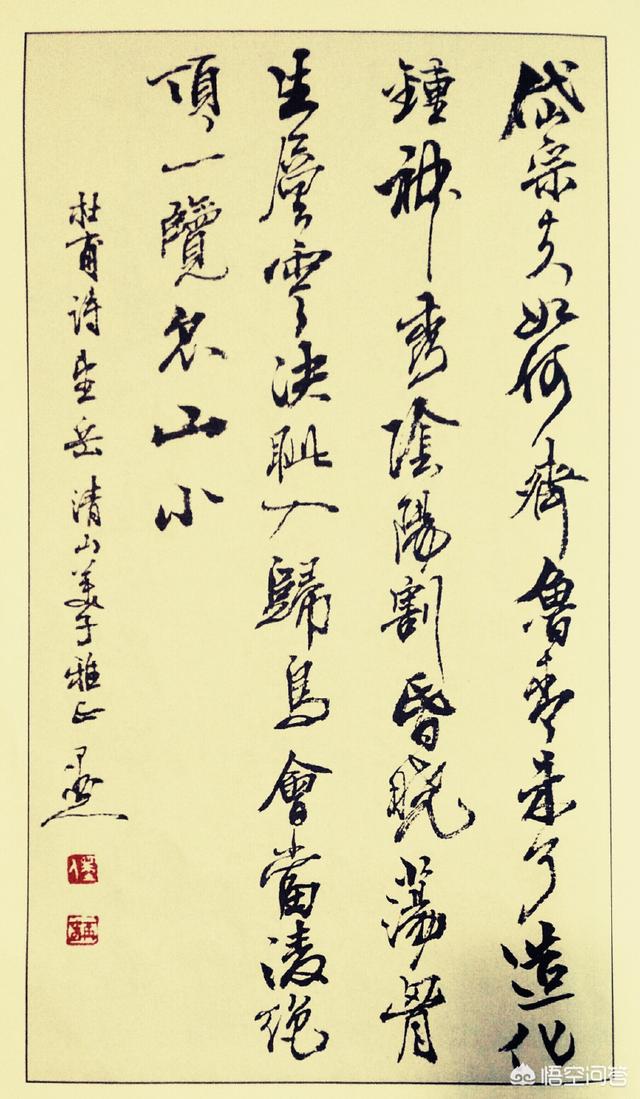 岱宗夫如何齊魯青未了造化
鍾神秀陰陽割昏曉蕩胷
生層雲決眦入歸鳥會當凌絕
頂一覽众山小
杜甫诗望岳清山美子雅正
悟空问答